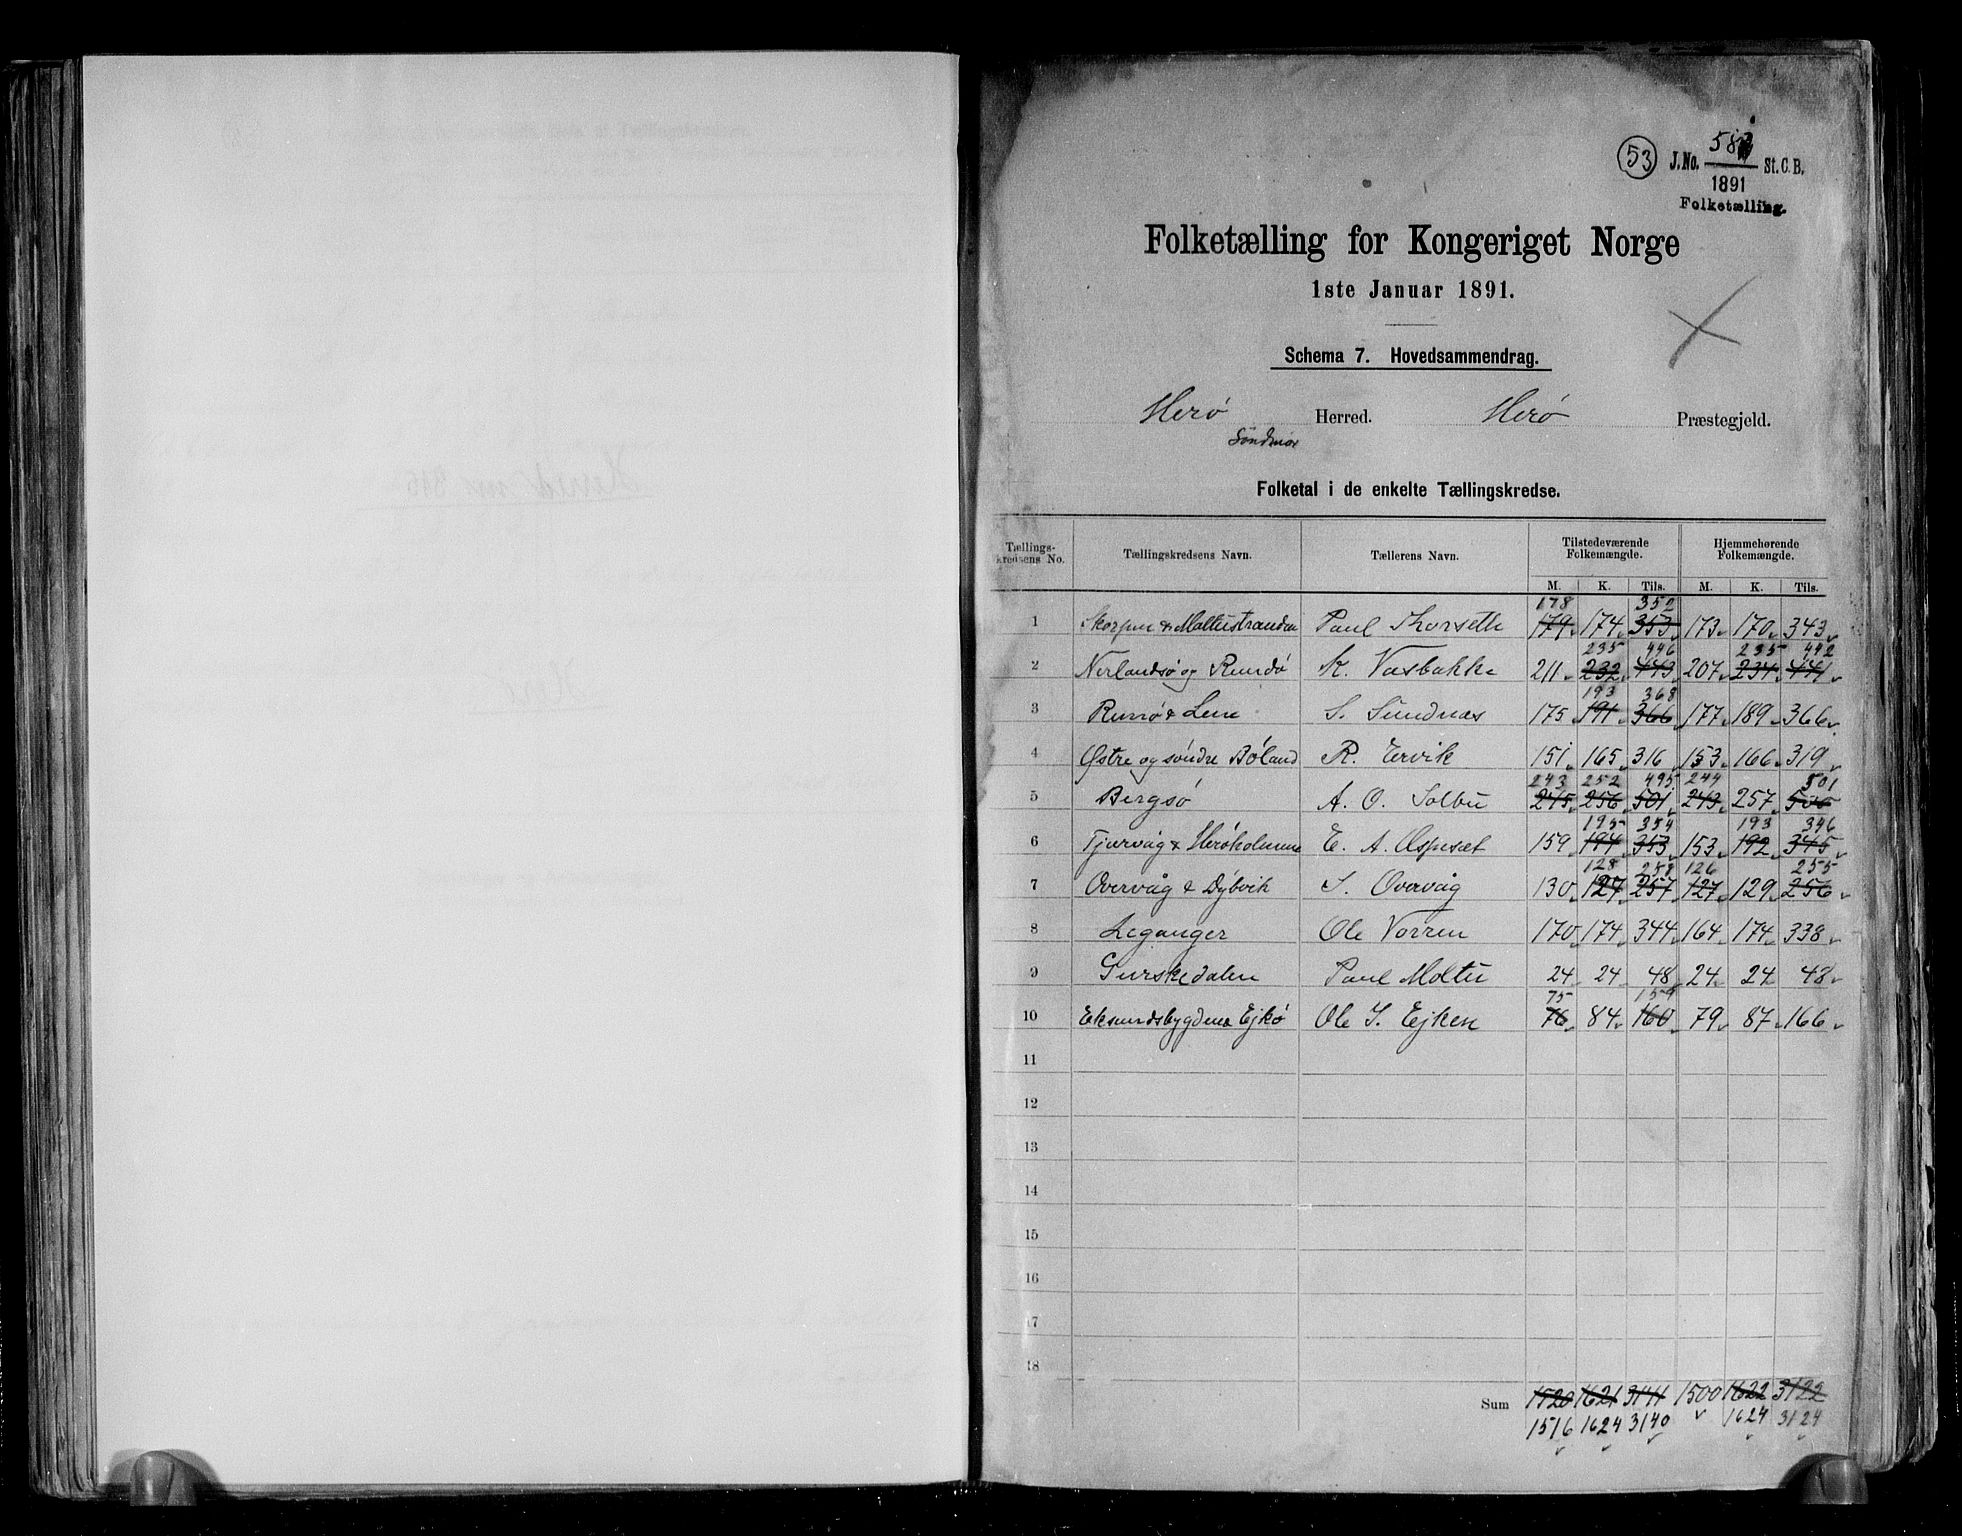 53 J. No. 58 St. C. B.
1891
Folketælling.
Folketælling for Kongeriget Norge
1ste Januar 1891.
Schema 7. Hovedsammendrag.
Herø Herred. Herø Præstegjeld.
Søndmør
Folketal i de enkelte Tællingskredse.
Tællings-kredsens No. Tællingskredsens Navn. Tællerens Navn. Tilstedeværende Folkemængde. Hjemmehørende Folkemængde.
M. K. Tils. M. K. Tils.
178 352
1 Skorpen & Moltustranden Paul Thorseth 179 174 353 173 170 343
235 446 235 442
2 Nerlandsø og Rundø K. Vasbakke 211 232 443 207 234 441
193 368
3 Remø & Leine S. Sundnæs 175 191 366 177 189 366
4 Østre og søndre Bøland R. Ervik 151 165 316 153 166 319
243 252 495 244 501
5 Bergsø A. O. Solbu 245 256 501 243 257 500
195 354 193 346
6 Tjørvåg & Herøholmene E. A. Aspeset 159 194 353 153 192 345
128 258 126 255
7 Overvåg & Dybvik S. Overvåg 130 127 257 127 129 256
8 Leganger Ole Vorren 170 174 344 164 174 338
9 Gurskedalen Paul Moltu 24 24 48 24 24 48
75 159
10 Eiksundsbygden & Ejkø Ole I. Ejken 76 84 160 79 87 166
11
12
13
14
15
16
17
18
Sum 1520 1621 3141 1500 1622 3122
1516 1624 3140 1624 3124